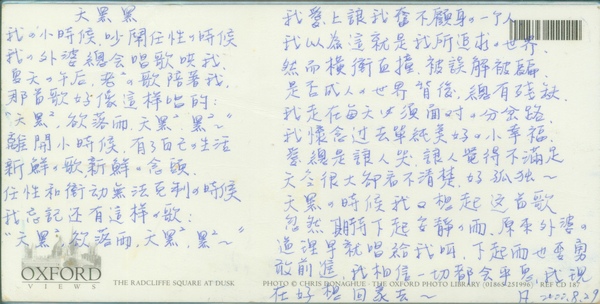 天黑黑
我の小時候,吵鬧任性の時候
我の外婆總會唱歌哄我
夏天の午后,老²の歌陪著我,
那首歌好像這樣唱的:
"天黑²,欲落雨,天黑²,黑²~"
離開小時候,有了自己の生活
新鮮の歌新鮮の念頭,
任性和衝動無法克制の時候
我忘記還有這樣の歌:
"天黑²,欲落雨,天黑²,黑²~"
我愛上讓我奮不顧身の一个人
我以為這就是我所追求の世界
然而橫衝直撞,被誤解被騙
是否成人の世界背後,總有殘缺
我走在每天必須面對の分岔路
我懷念过去單純美好の小幸福
愛總是讓人哭,讓人覺得不滿足
天空很大卻看不清楚,好孤独~
天黑の時候我の想起這首歌
忽然期待下起安靜の雨,原來外婆の
道理早就唱給我听,下起雨也要勇
敢前進,我相信一切都会平息,我現
在好想回家去~
月 2000.8.29
OXFORD
VIEWS
THE RADCLIFFE SQUARE AT DUSK
PHOTO © CHRIS DONAGHUE - THE OXFORD PHOTO LIBRARY (01865 251996) REF CD 187